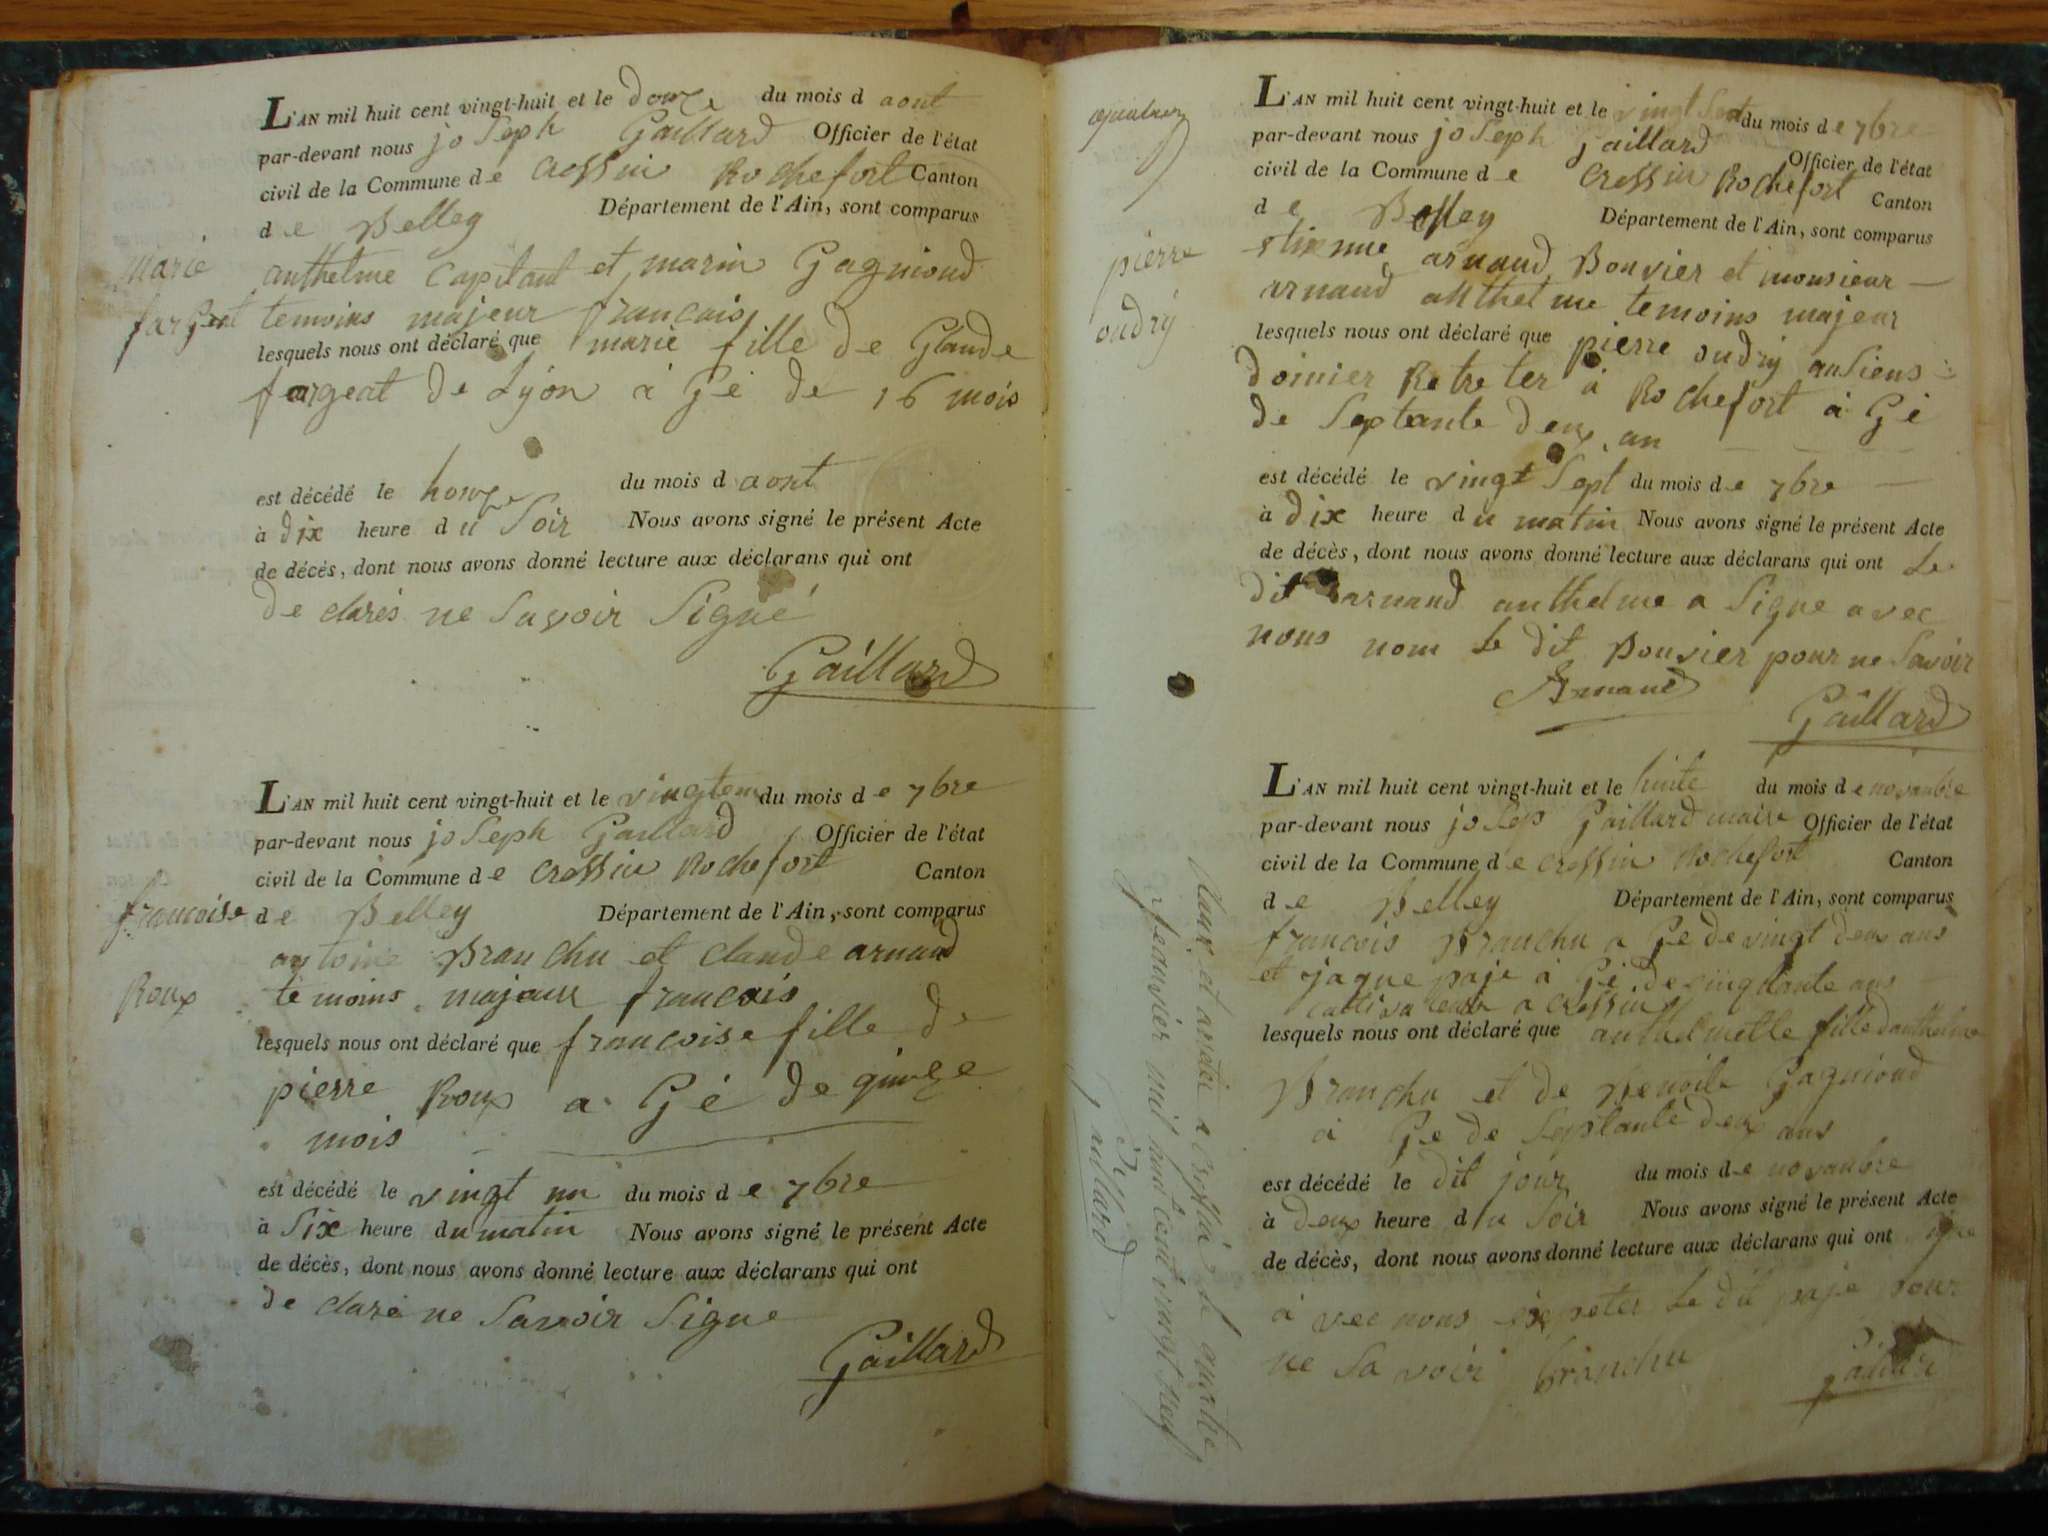 L'AN mil huit cent vingt-huit et le douze du mois d aout
par-devant nous joseph Gaillard Officier de l'état
civil de la Commune de Cressin Rochefort Canton
de Belley Département de l'Ain, sont comparus
marie
anthelme Capitant et marin Gagnioud
fargeat
temoins majeur francais
lesquels nous ont déclaré que marie fille de Glaude
fargeat de Lyon à Gé de 16 mois
est décédé le honze du mois d aout
à dix heure du Soir Nous avons signé le présent Acte
de décès, dont nous avons donné lecture aux déclarans qui ont
de clarés ne Savoir Signé
Gaillard
L'AN mil huit cent vingt-huit et le vingt un du mois de 7bre
par-devant nous joseph Gaillard Officier de l'état
civil de la Commune de Cressin Rochefort Canton
francoise
de Belley Département de l'Ain, sont comparus
antoine Branchu et claude arnaud
Roux
temoins majeur francais
lesquels nous ont déclaré que francoise fille de
pierre Roux a Gé de quinze
mois
est décédé le vingt un du mois de 7bre
à Six heure du matin Nous avons signé le présent Acte
de décès, dont nous avons donné lecture aux déclarans qui ont
de claré ne Savoir Signe
Gaillard
L'AN mil huit cent vingt-huit et le vingt Sept du mois de 7bre
par-devant nous joseph gaillard Officier de l'état
civil de la Commune de Cressin Rochefort Canton
de Belley Département de l'Ain, sont comparus
pierre
oudry
etienne arnaud Bouvier et monsieur
arnaud anthelme temoins majeur
lesquels nous ont déclaré que pierre oudry ansiens
doinier Retreter à Rochefort à Gé
de Septante deux an
est décédé le vingt Sept du mois de 7bre
à dix heure du matin Nous avons signé le présent Acte
de décès, dont nous avons donné lecture aux déclarans qui ont Le
dit arnaud anthelme a Signe avec
nous nom Le dit Bouvier pour ne Savoir
Arnaud
Gaillard
L'AN mil huit cent vingt-huit et le huite du mois de novanbre
par-devant nous josep Gaillard maire Officier de l'état
civil de la Commune de Cressin Rochefort Canton
de Belley Département de l'Ain, sont comparus
francois Branchu a Gé de vingt deux ans
et jaque paje à Gé de cinqutante ans
cultivateur a Cressin
lesquels nous ont déclaré que anthelmette fille danthelme
Branchu et de Benoite Gagnioud
à Gé de Septante deux ans
est décédé le dit jour du mois de novanbre
à deux heure du Soir Nous avons signé le présent Acte
de décès, dont nous avons donné lecture aux déclarans qui ont signe
à vec nous exepeter Le dit paje pour
ne Sa voir branchu
Gaillard
Claux et arreter a Cressin le quatre
jeauvier mil huit cent vingt neuf
Gaillard